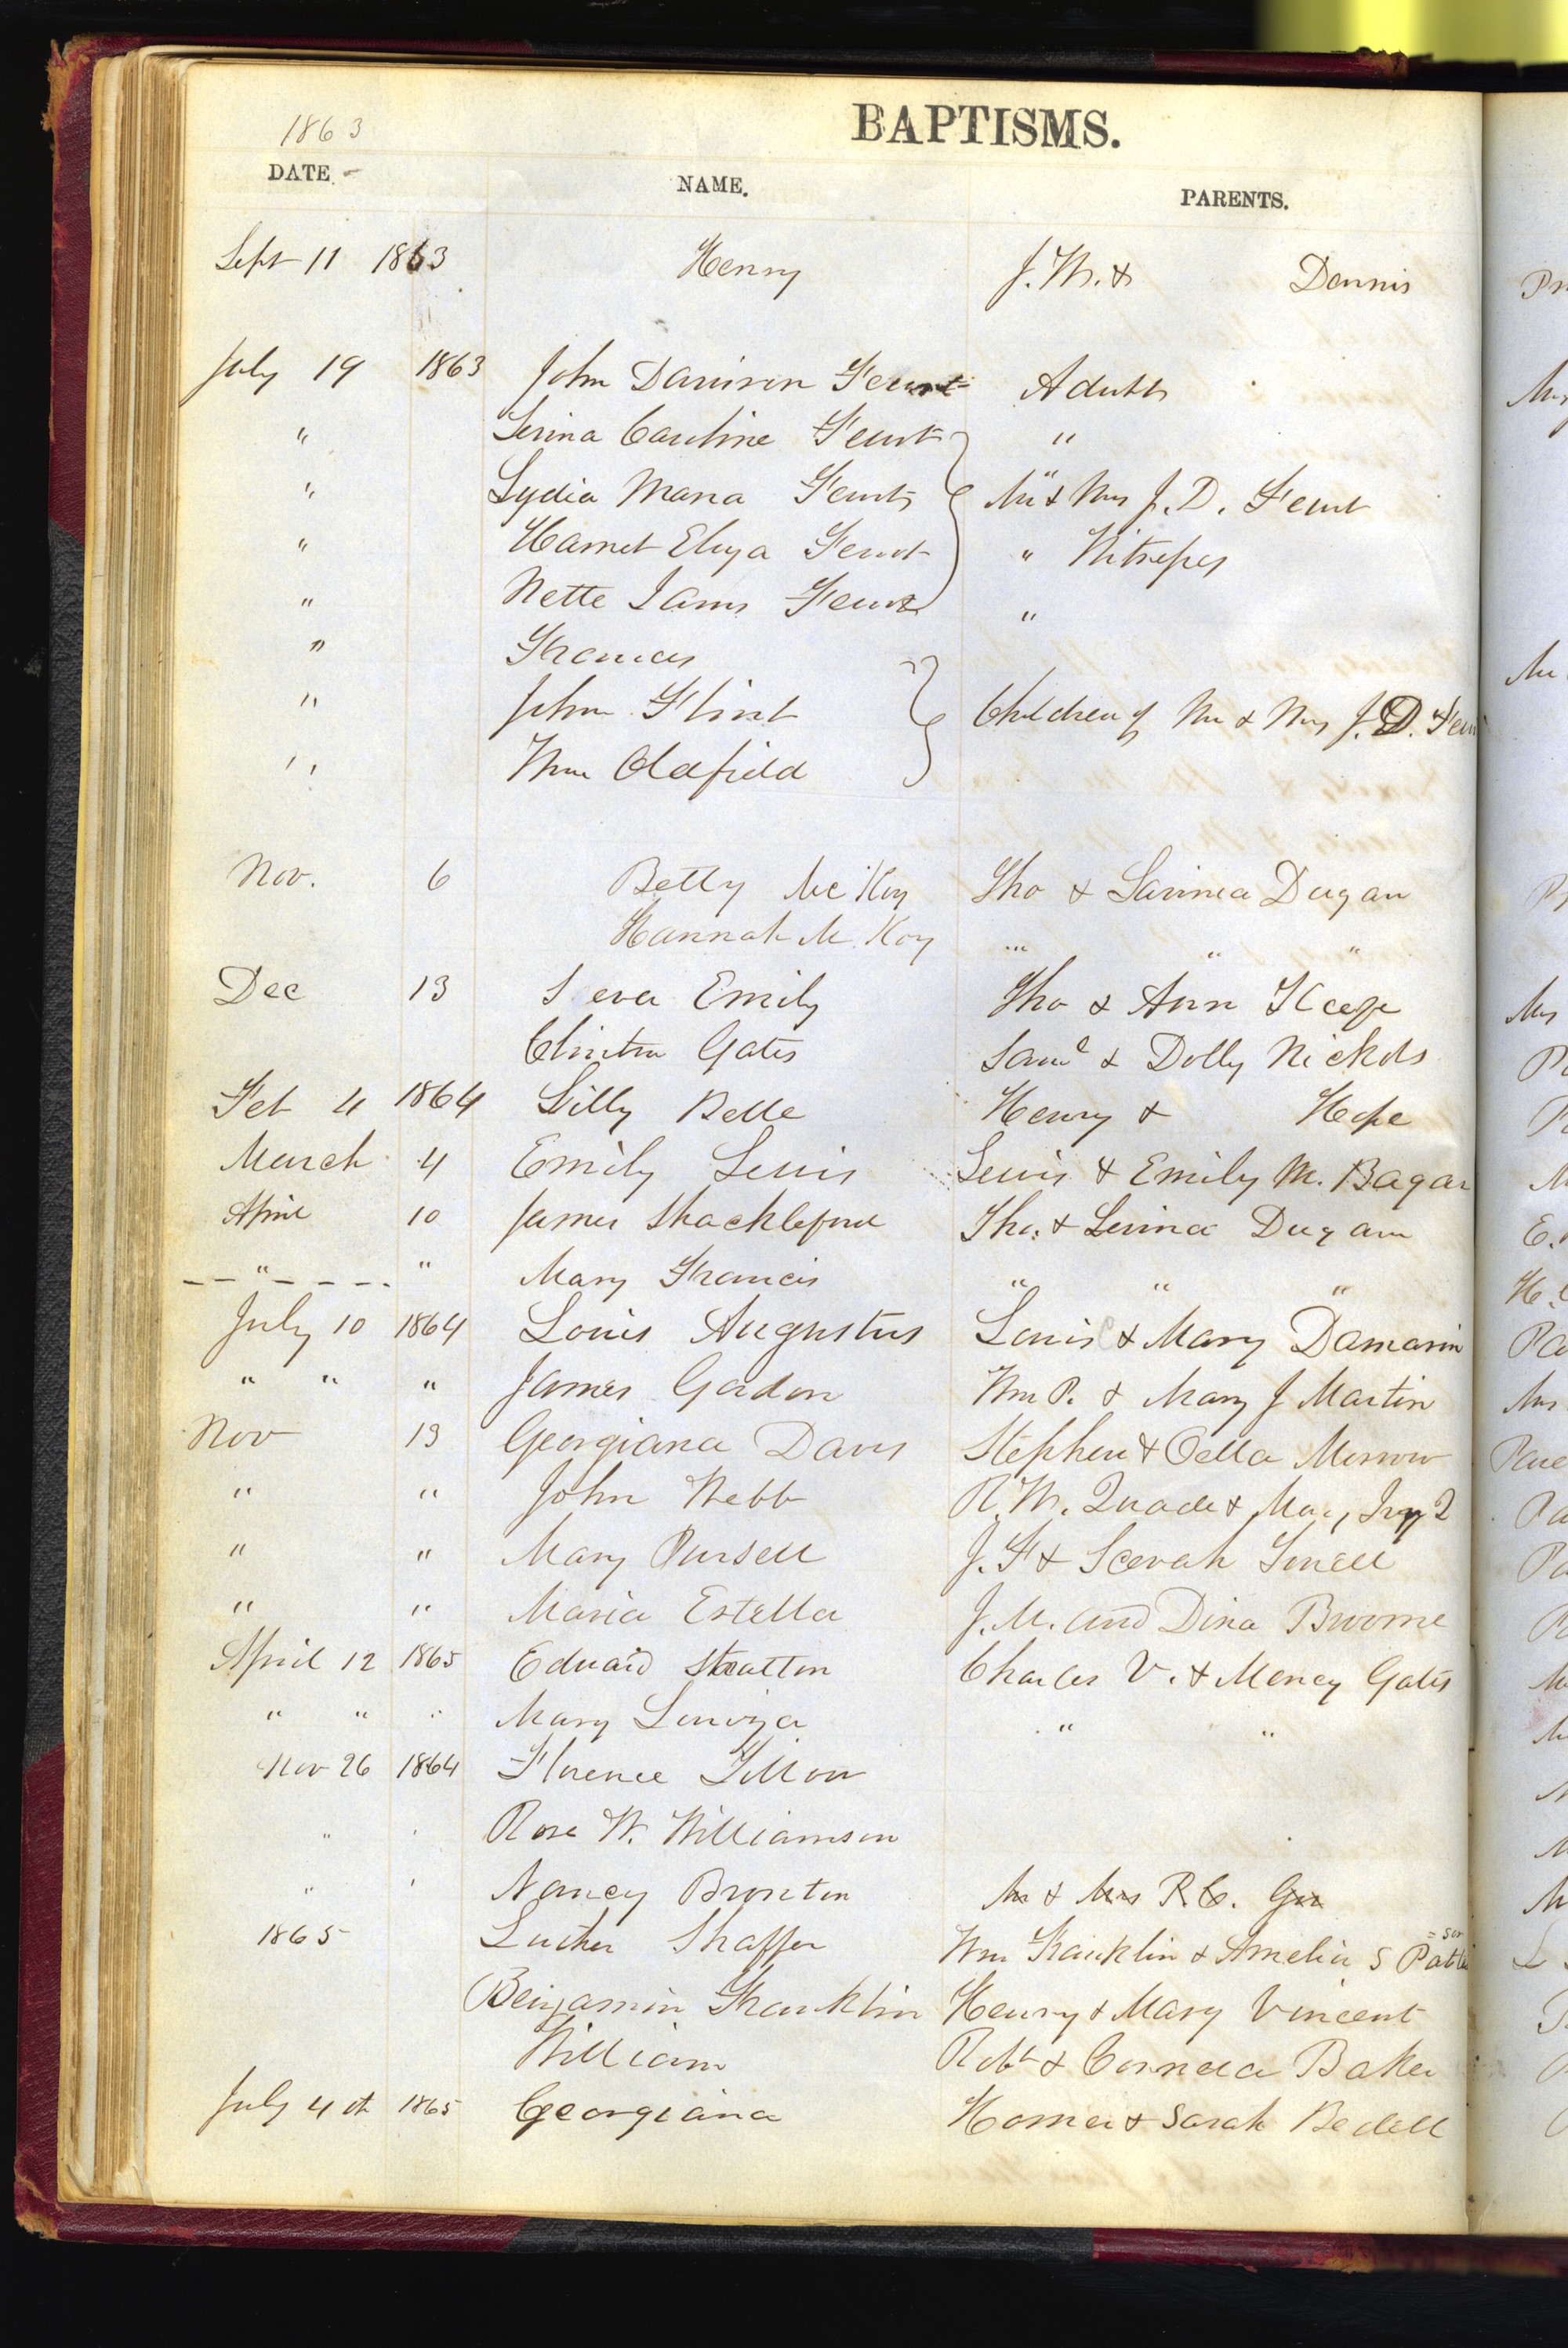 1863
BAPTISMS.
DATE NAME. PARENTS.
Sept 11 1863 Henry J. W. & Dennis
July 19 1863 John Davison Feurt Adults
" Caroline Feurt "
" Lydia Maria Feurt Mr & Mrs J. D. Feurt
" Harriet Eliza Feurt " Witnesses
" Nette Feurt "
" Frances
" John Flint Children of Mr & Mrs J. D.
" Wm Oldfield
Nov. 6 Betty McKoy Tho & Lavinia Dugan
Hannah M. Koy " " "
Dec 13 Emily Tho & Ann
Clinton Gates Saml & Dolly Nichols
Feb 4 1864 Lilly Belle Henry & Hope
March 4 Emily Lewis Lewis & Emily M.
April 10 James Shackleford Tho. & Levina Dugan
" " Mary Francis " " "
July 10 1864 Louis Augustus Louis & Mary Damarin
" " " James Gordon Wm P. & Mary J Martin
Nov 13 Georgiana Davis Stephen & Oella Morrow
" " John Webb R. W.
" " Mary Pursell J. F &
" " Maria Estella J. M. and Dina Broome
April 12 1865 Edward Stratton Charles V. & Gates
" " " Mary " "
Nov 26 1864 Florence
" Rose W. Williamson
" Nancy Mr & Mrs R. C.
1865 Luther Shaffer Wm Franklin & Amelia S
Benjamin Franklin Henry & Mary Vincent
William Robt & Cornelia Baker
July 4th 1865 Georgiana Homer & Sarah Bedell